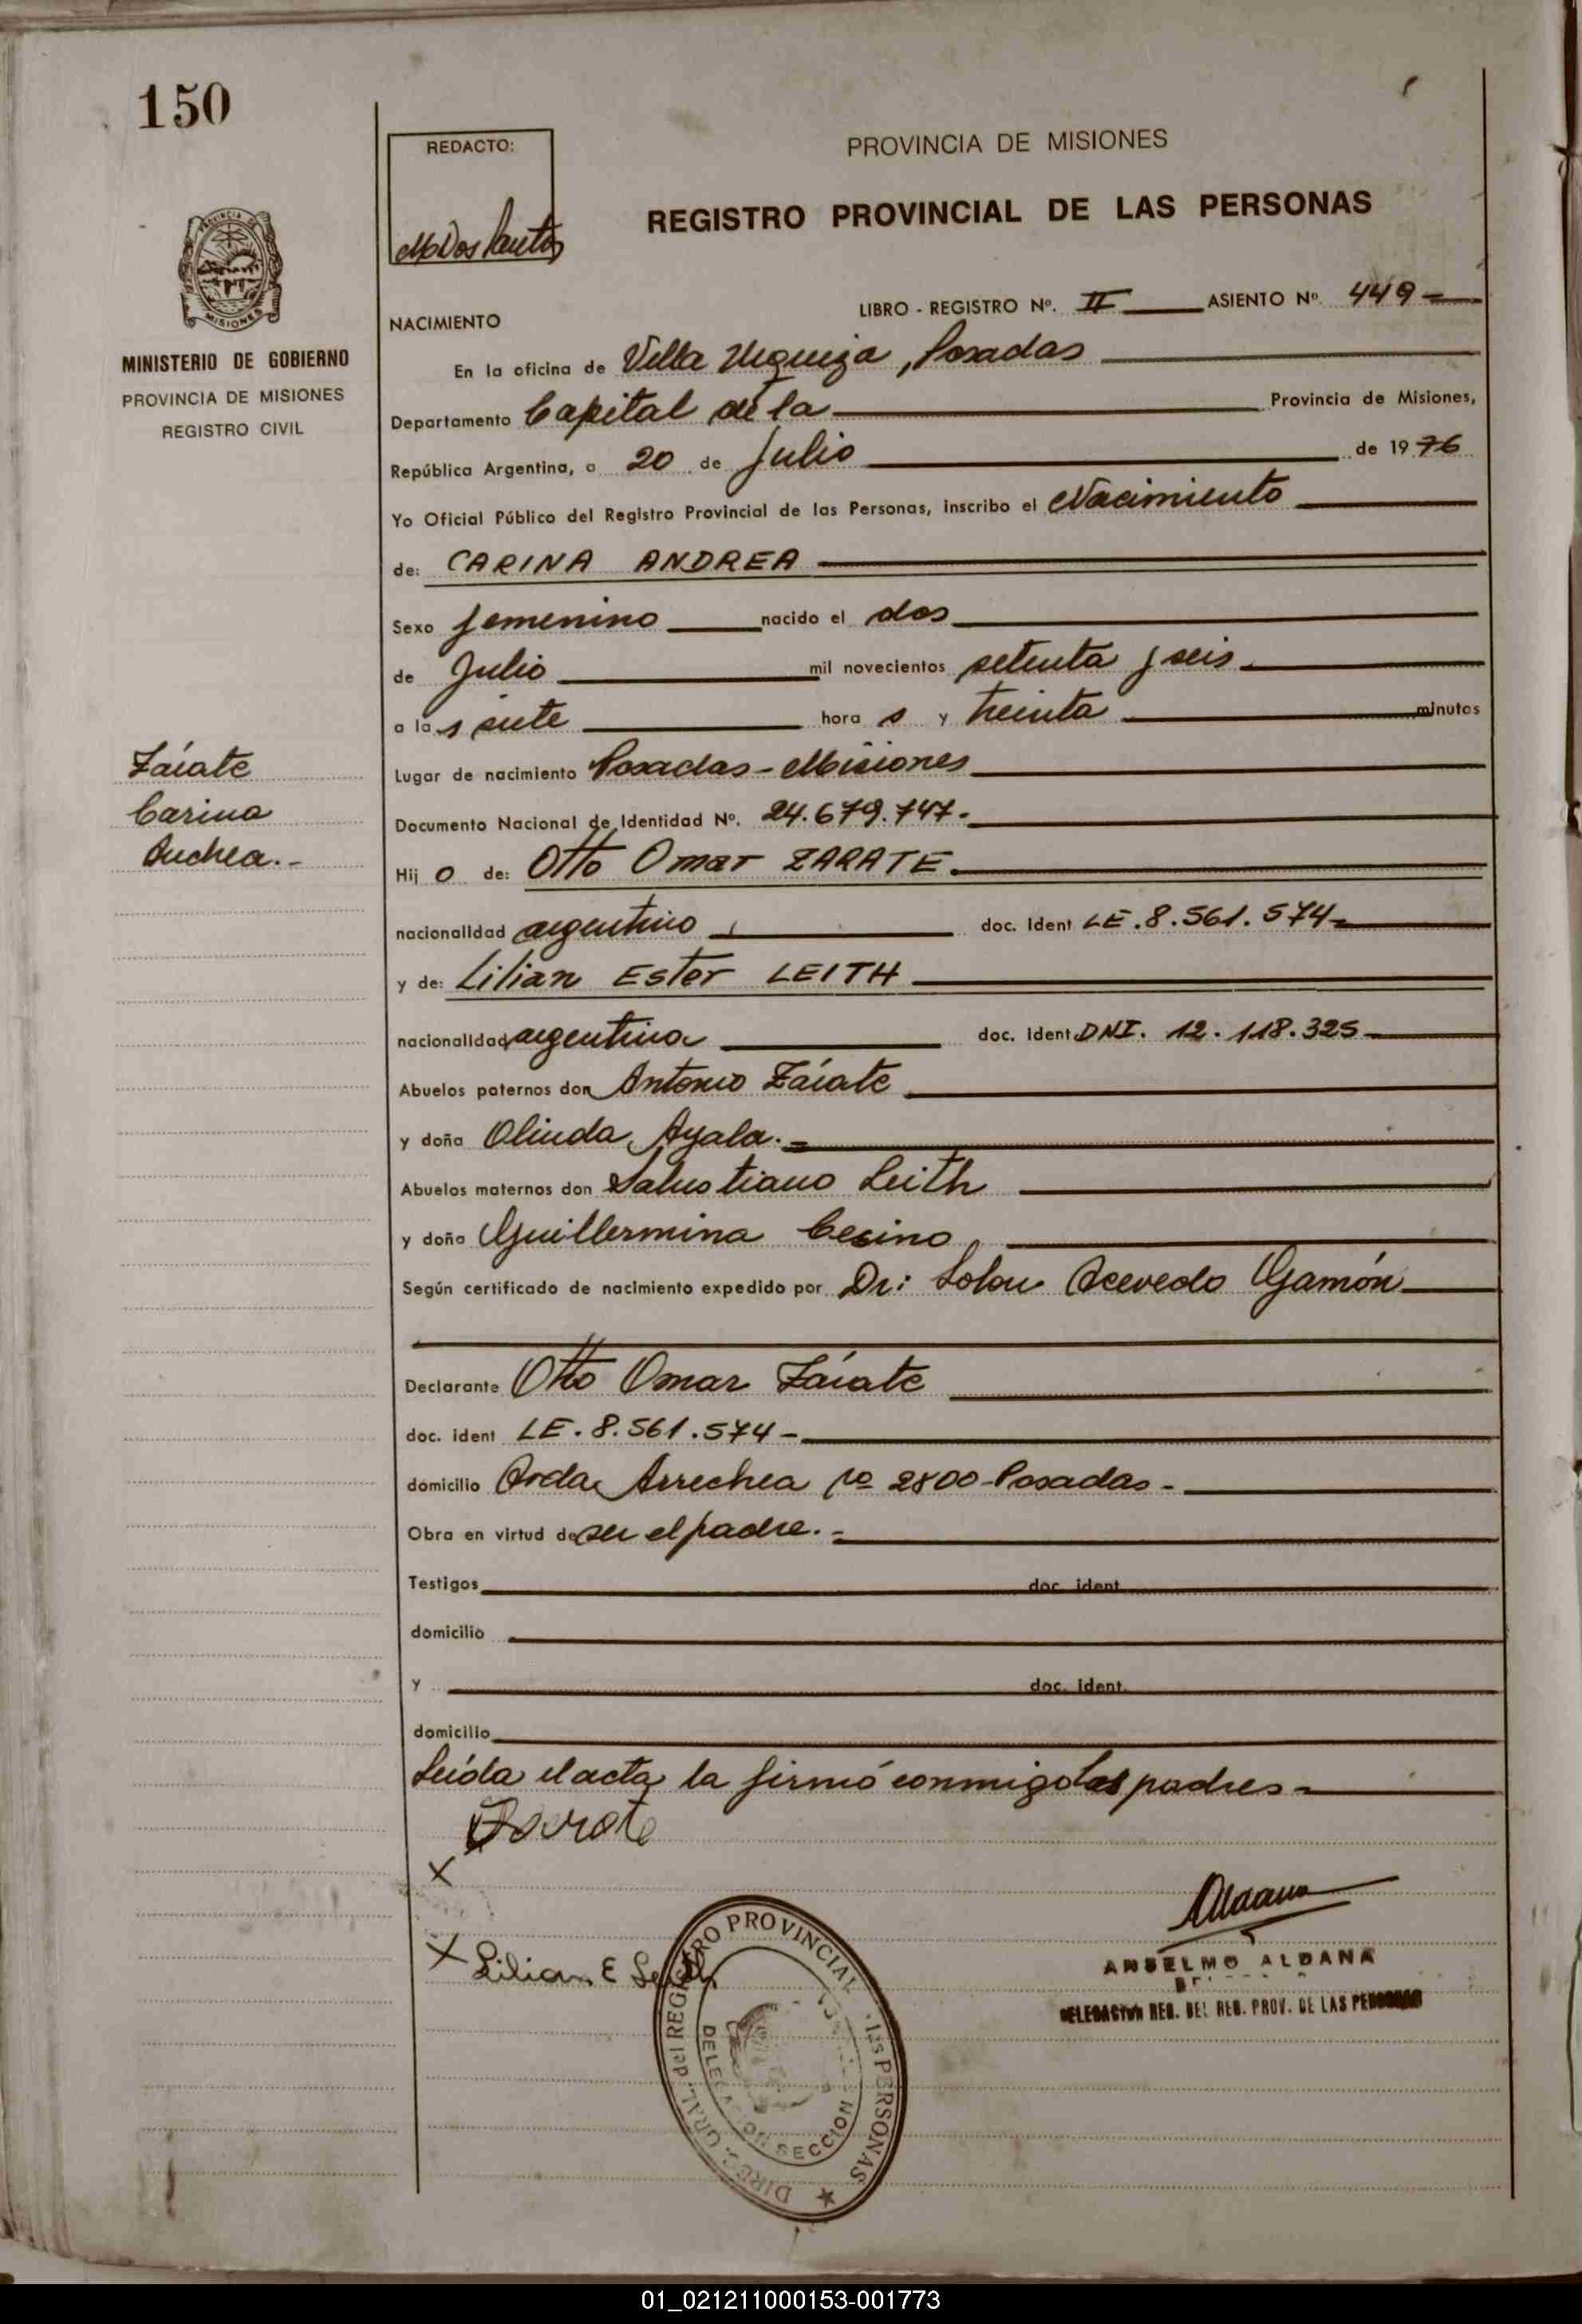 150
REDACTO:
MDos Santos
PROVINCIA DE MISIONES
REGISTRO PROVINCIAL DE LAS PERSONAS
PROVINCIA DE MISIONES
MINISTERIO DE GOBIERNO
PROVINCIA DE MISIONES
REGISTRO CIVIL
LIBRO - REGISTRO Nº. II ASIENTO Nº. 449
NACIMIENTO
En la oficina de Villa Urquiza, Posadas
Departamento Capital de la Provincia de Misiones,
República Argentina, a 20 de Julio de 1976
Yo Oficial Público del Registro Provincial de las Personas, inscribo el Nacimiento
de: CARINA ANDREA
Sexo femenino nacido el dos
de Julio mil novecientos setenta y seis
a las siete hora s y treinta minutos
Zárate
Carina
Andrea.-
Lugar de nacimiento Posadas - Misiones
Documento Nacional de Identidad Nº. 24.679.747.-
Hij o de: Otto Omar ZARATE.
nacionalidad argentino doc. Ident LE.8.561.574-
y de: Lilian Ester LEITH
nacionalidad argentina doc. ident DNI. 12.118.325
Abuelos paternos don Antonio Zárate
y doña Olinda Ayala.=
Abuelos maternos don Salustiano Leith
y doña Guillermina Cesino
Según certificado de nacimiento expedido por Dr: Solon Acevedo Gamón
Declarante Otto Omar Zárate
doc. ident LE.8.561.574-
domicilio Avda Arrechea Nº 2800-Posadas-
Obra en virtud de ser el padre.=
Testigos doc. ident
domicilio
y doc. ident.
domicilio
Leída el acta la firmó conmigo los padres=
Zarate
X
X Lilian E Leith
Aldana
ANSELMO ALDANA
DELEGACION REG. DEL REG. PROV. DE LAS PERSONAS
DIREC. GRAL. del REGISTRO PROVINCIAL LAS PERSONAS
DELEGACION SECCION
01_021211000153-001773